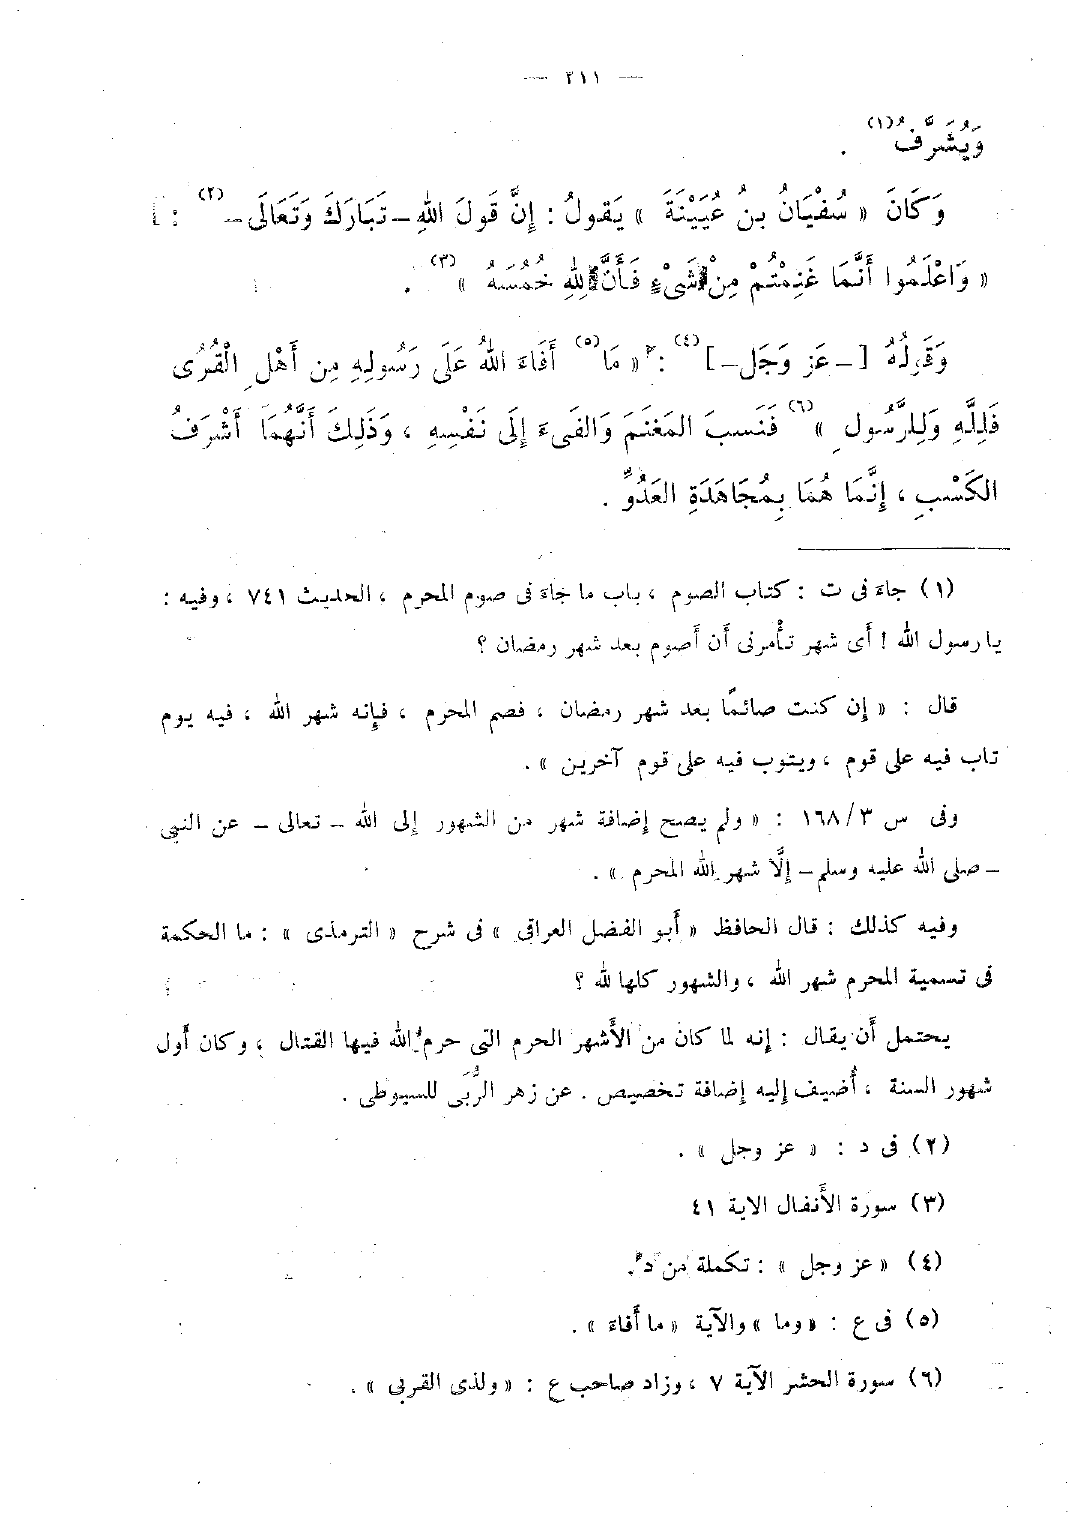 — ٢١١ —
وَيُشَرَّفُ(١) .
وَكَانَ « سُفْيَانُ بنُ عُيَيْنَةَ » يَقولُ : إِنَّ قَولَ اللهِ –تَبَارَكَ وَتَعَالَى–(٢) :
« وَاعْلَمُوا أَنَّمَا غَنِمْتُمْ مِنْ شَىْءٍ فَأَنَّ لِلهِ خُمُسَهُ »(٣) .
وَقَولُهُ [ –عَز وَجَل– ](٤) : « مَا(٥) أَفَاءَ اللهُ عَلَى رَسُولِهِ مِن أَهْلِ الْقُرَى
فَلِلَّهِ وَلِلرَّسُولِ »(٦) فَنَسبَ المَغنَمَ وَالفَىءَ إِلَى نَفْسِهِ ، وَذَلِكَ أَنَّهُمَا أَشْرَفُ
الكَسْبِ ، إِنَّمَا هُمَا بِمُجَاهَدَةِ العَدُوِّ .
(١) جاءَ فى ت : كتاب الصوم ، باب ما جاءَ فى صوم المحرم ، الحديث ٧٤١ ، وفيه :
يا رسول الله ! أَى شهر تأْمرنى أَن أَصوم بعد شهر رمضان ؟
قال : « إن كنت صائمًا بعد شهر رمضان ، فصم المحرم ، فإنه شهر الله ، فيه يوم
تاب فيه على قوم ، ويتوب فيه على قوم آخرين » .
وفى س ١٦٨/٣ : « ولم يصح إضافة شهر من الشهور إلى الله – تعالى – عن النبى
– صلى الله عليه وسلم – إلَّا شهر الله المحرم » .
وفيه كذلك : قال الحافظ « أَبو الفضل العراقى » فى شرح « الترمذى » : ما الحكمة
فى تسمية المحرم شهر الله ، والشهور كلها لله ؟
يحتمل أَن يقال : إنه لما كان من الأَشهر الحرم التى حرم الله فيها القتال ، وكان أَول
شهور السنة ، أُضيف إليه إضافة تخصيص . عن زهر الرُّبَى للسيوطى .
(٢) فى د : « عز وجل » .
(٣) سورة الأَنفال الاية ٤١
(٤) « عز وجل » : تكملة من د .
(٥) فى ع : « وما » والآية « ما أَفاءَ » .
(٦) سورة الحشر الآية ٧ ، وزاد صاحب ع : « ولذى القربى » .